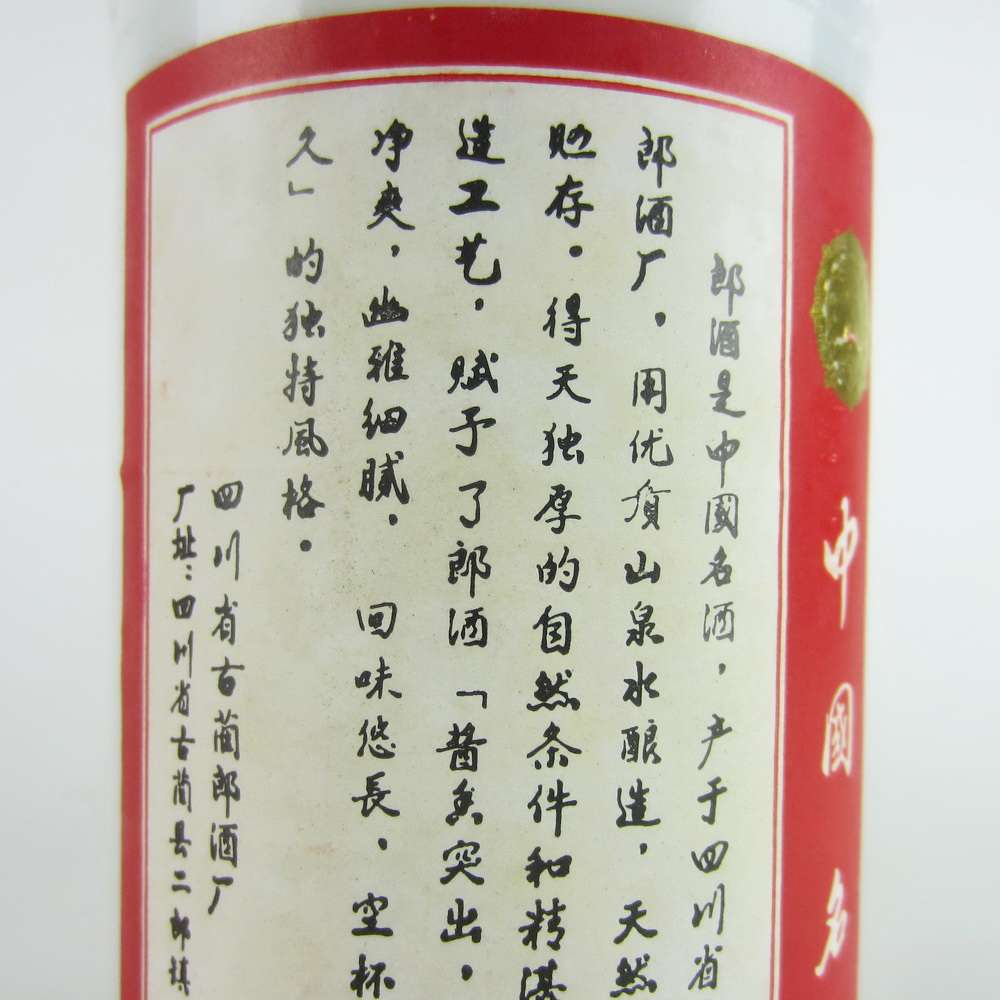 中國名
郎酒是中國名酒，产于四川省
郎酒厂，用优质山泉水酿造，天然
贮存。得天独厚的自然条件和精湛
造工艺，赋予了郎酒「酱香突出，
净爽，幽雅细腻，回味悠長，空杯
久」的独特風格。
四川省古蔺郎酒厂
厂址：四川省古蔺县二郎镇